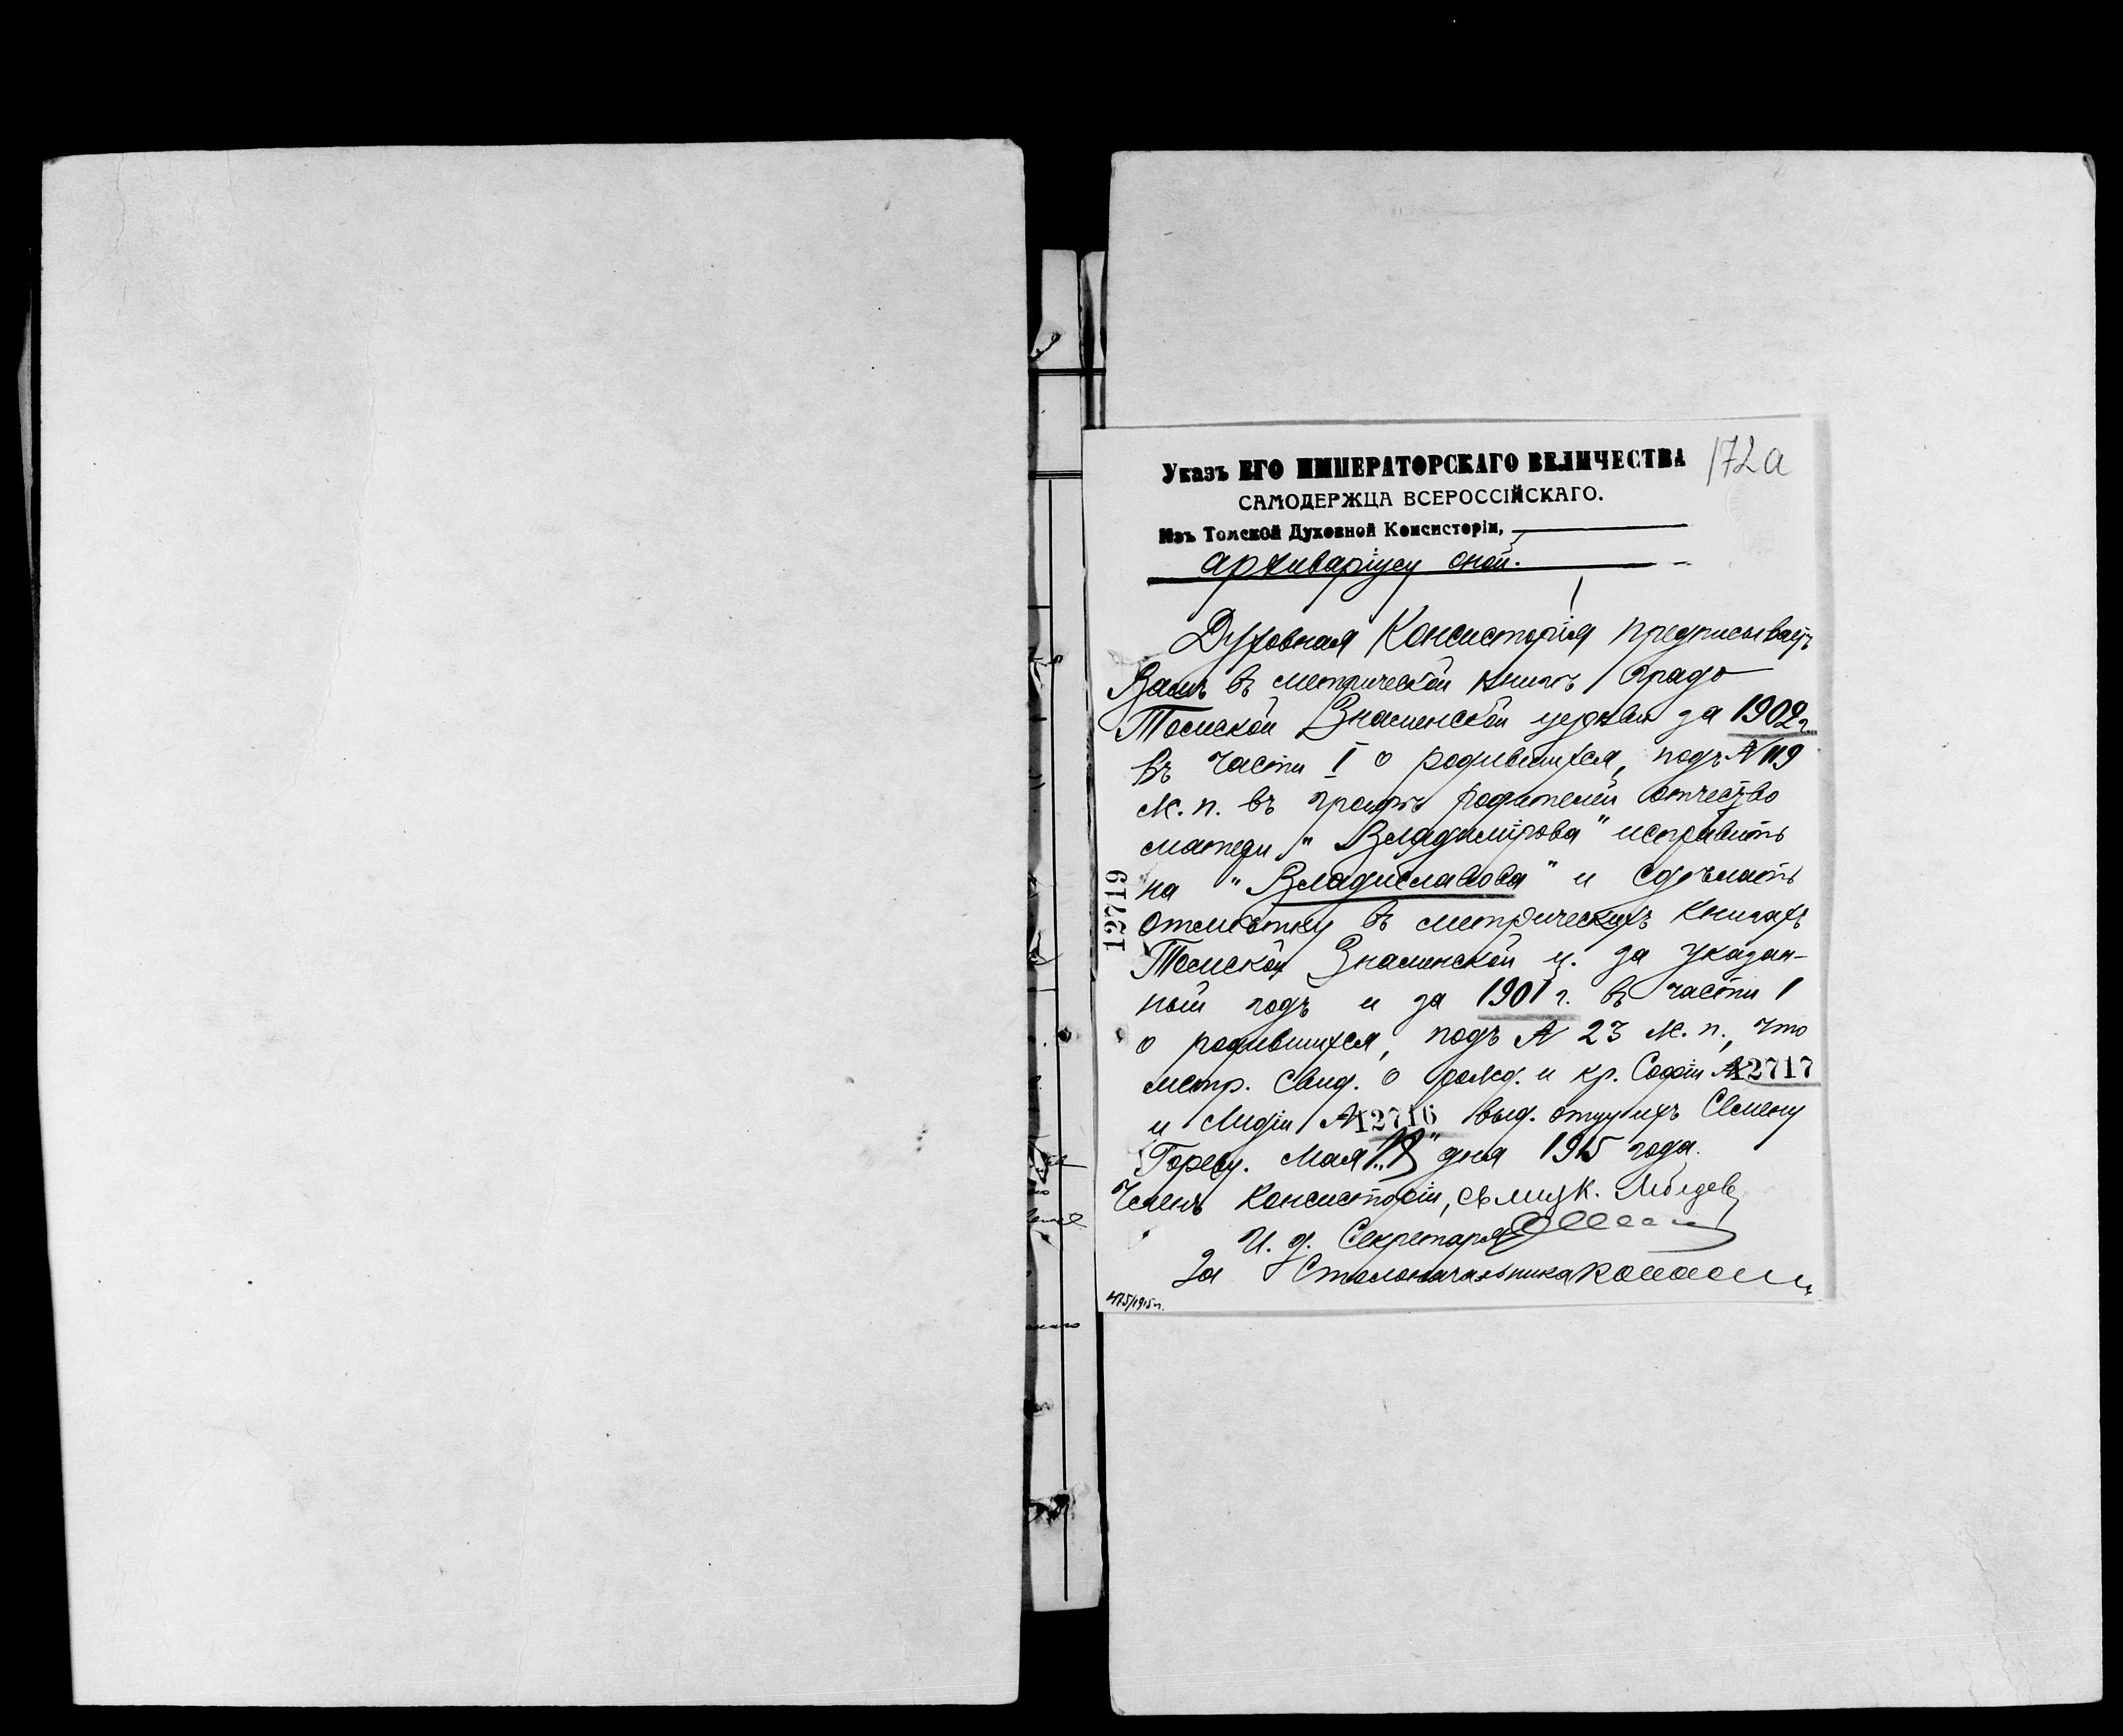 172а
Указъ ЕГО ИМПЕРАТОРСКАГО ВЕЛИЧЕСТВА
САМОДЕРЖЦА ВСЕРОССІЙСКАГО.
Изъ Томской Духовной Консисторіи,
архиваріусу оной.
Духовная Консисторія предписываетъ
Вамъ въ метрической книгѣ градо
Томской Знаменской церкви за 1902 г.
въ части I о родившихся, подъ № 119
м. п. въ графѣ родителей отчество
матери "Владимірова" исправить
на "Владиславова" и сдѣлать
отмѣтку въ метрическихъ книгахъ
Томской Знаменской ц. за указан-
ный годъ и за 1901 г. въ части I
о родившихся, подъ № 23 м. п., что
метр. свид. о рожд. и кр. Софіи № 12717
и Лидіи № 12716 выд. отцу ихъ Семену
Мая дня 1915 года.
Членъ Консисторіи, Лебедев
И. д. Секретаря
За Столоначальника
12719
475/1915 г.